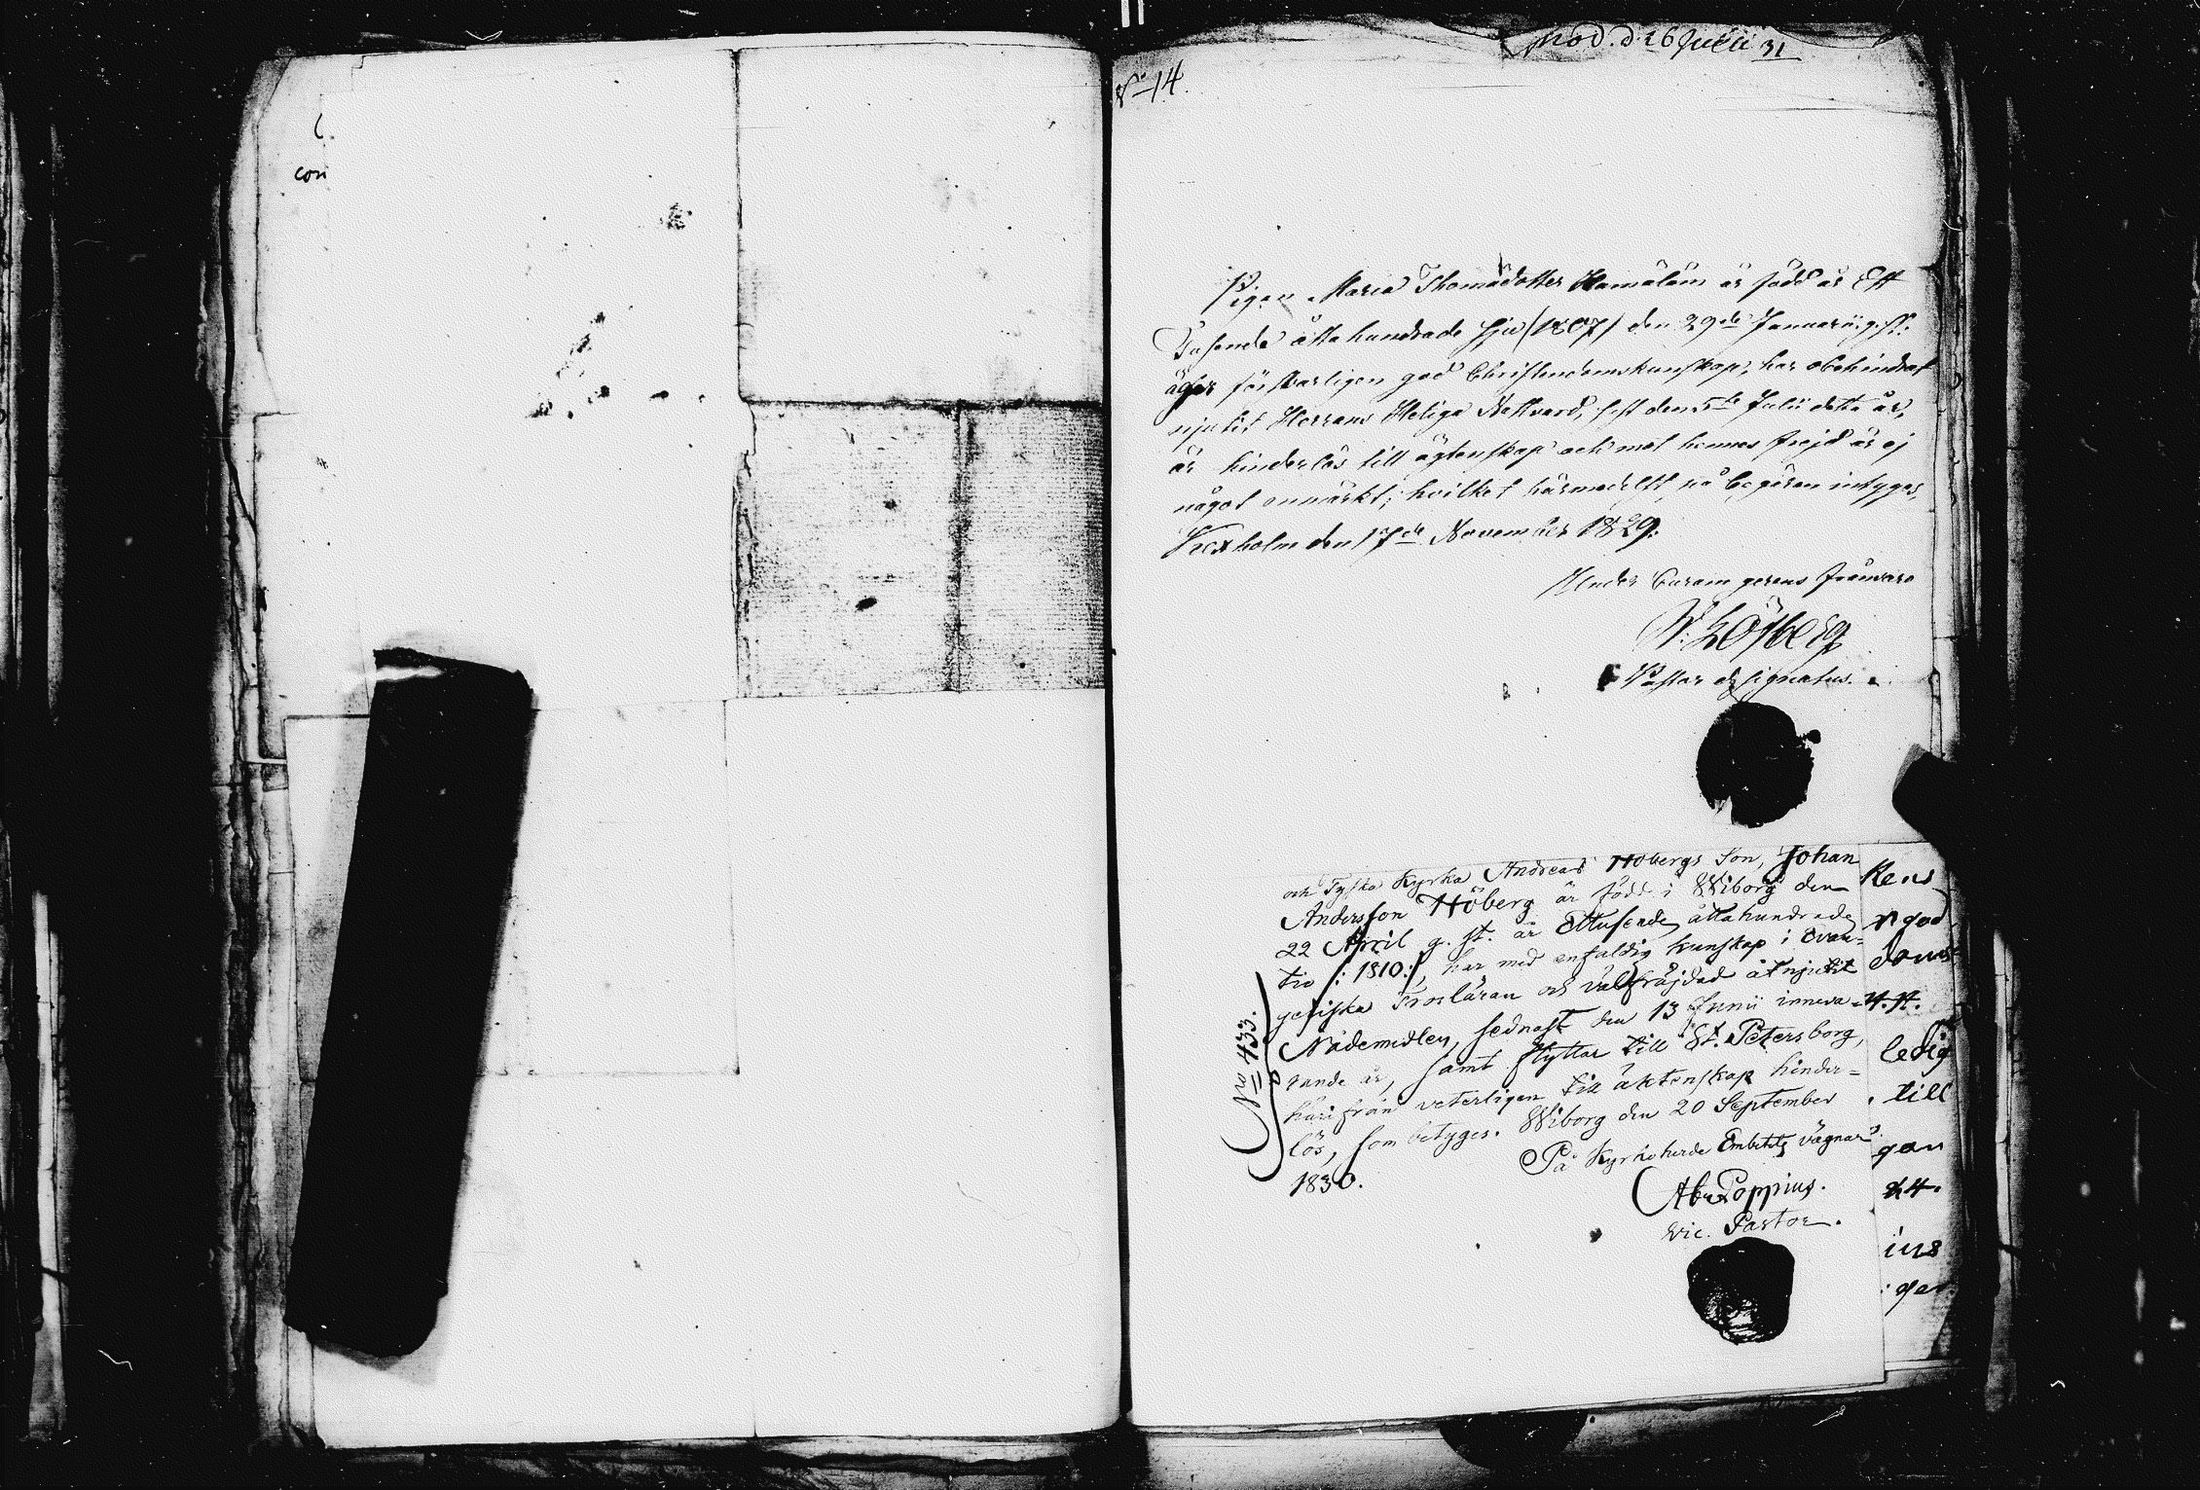 C.
con
No 14.
prod. d. 26 Julii 31
Pigan Maria Thomædotter Hamalain är född år Ett
Tusende åttahundrade sju (1807) den 29de Januarii g. St:
äger försvarligen god Christendomskunskap, har obehindrat
njutit Herrans Heliga Nattvard, sist den 5te Julii detta år,
är hinderlös till ägtenskap och mot hennes frejd är ej
något anmärkt; hvilket härmedelst på begäran intygas,
Kexholm den 17de November 1829.
Under Curam gerens frånvaro
Löfberg
Pastor designatus.
och Tyska Kyrka Andreas Höbergs Son, Johan
Andersson Höberg är född i Wiborg den
22 April g. st. år Ettusende åttahundrade
tio /: 1810:/, har med enfaldig kunskap i Evan-
geliska Trosläran och välfräjdad åtnjutit
Nådemedlen, sednast den 13 Junii inneva-
rande år, samt flyttar till St. Petersborg,
härifrån veterligen till äktenskap hinder-
lös, som betygas. Wiborg den 20 September
1830.
På Kyrkoherde Embetets vägnar
Abr Poppius.
Vic. Pastor.
Nro 433.
god
ledig
till
gan